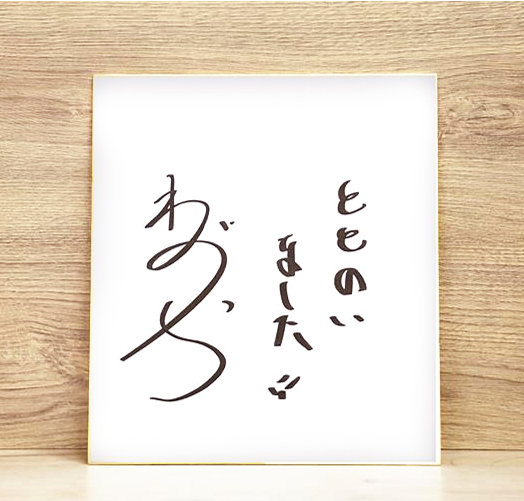 ととのい
ました!!
ねづっち